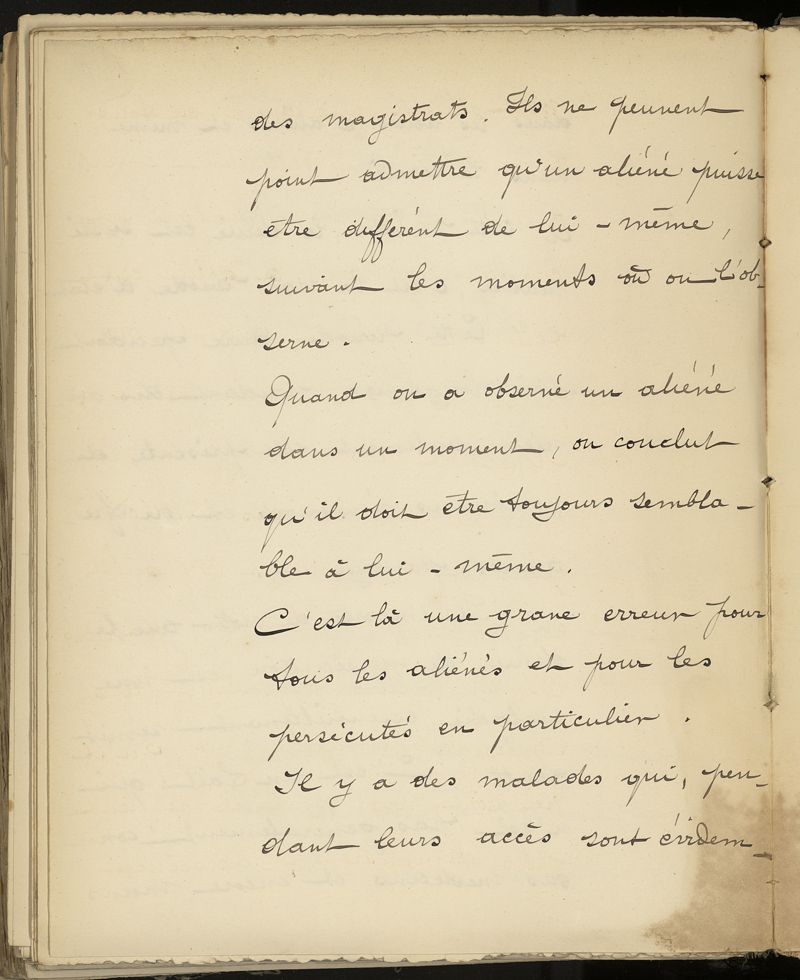 des magistrats. Ils ne peuvent
point admettre qu'un aliéné puisse
etre différent de lui-même,
suivant les moments où on l'ob-
serve.
Quand on a observé un aliéné
dans un moment, on conclut
qu'il doit etre toujours sembla-
ble à lui-même.
C'est là une grave erreur pour
tous les aliénés et pour les
persécutés en particulier.
Il y a des malades qui, pen-
dant leurs accès sont évidem-